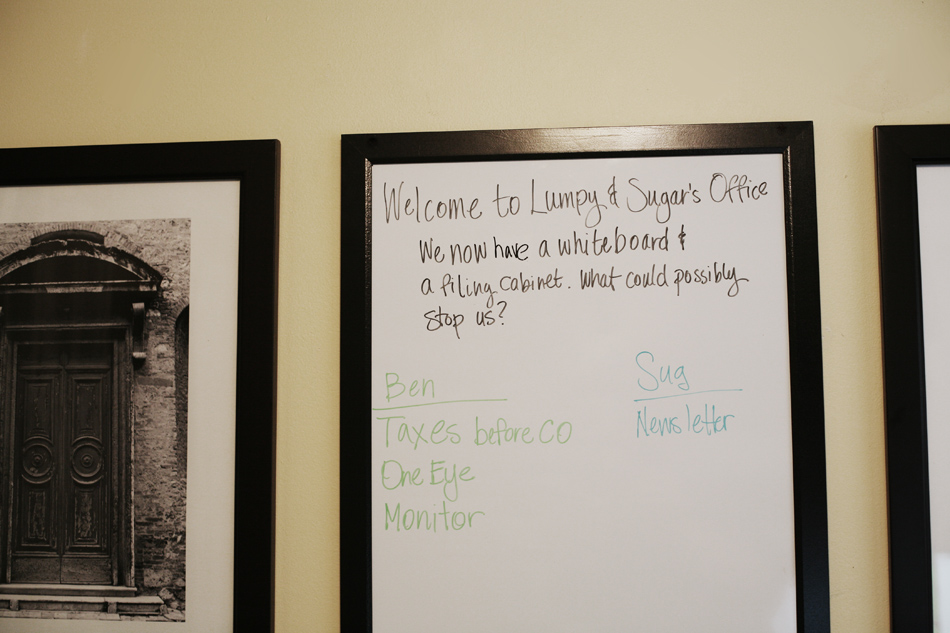 Welcome to Lumpy & Sugar's Office
We now have a whiteboard &
a filing cabinet. What could possibly
stop us?
Ben
Taxes before CO
One Eye
Monitor
Sug
Newsletter